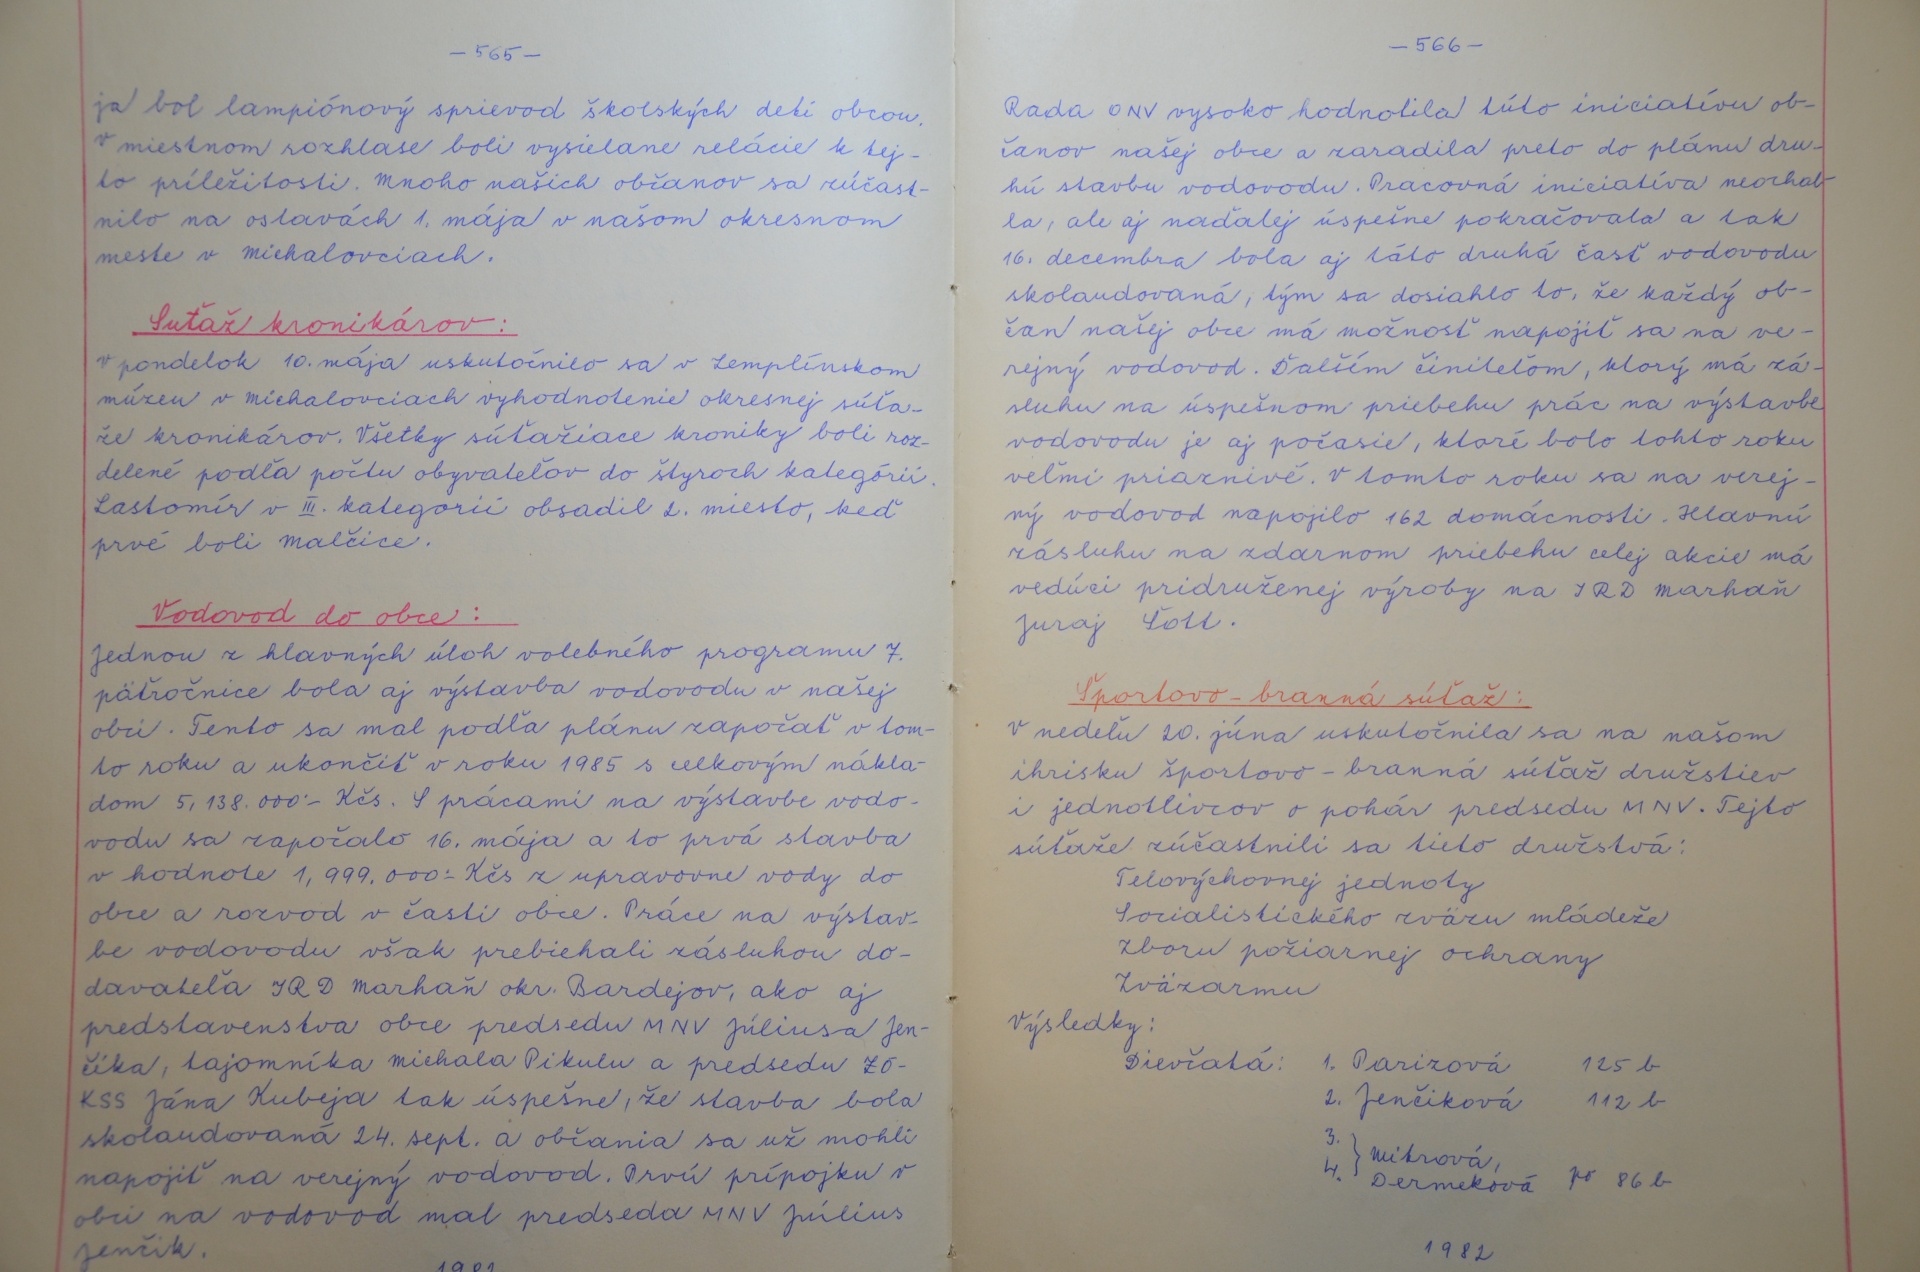 - 565 -
ja bol lampiónový sprievod školských detí obcou.
V miestnom rozhlase boli vysielane relácie k tej-
to príležitosti. Mnoho našich občanov sa zúčast-
nilo na oslavách 1. mája v našom okresnom
meste v Michalovciach.
Suťaž kronikárov:
V pondelok 10. mája uskutočnilo sa v Zemplínskom
múzeu v Michalovciach vyhodnotenie okresnej súťa-
že kronikárov. Všetky súťažiace kroniky boli roz-
delené podľa počtu obyvateľov do štyroch kategórií.
Lastomír v III. kategorií obsadil 2. miesto, keď
prvé boli Malčice.
Vodovod do obce:
Jednou z hlavných úloh volebného programu 7.
päťročnice bola aj výstavba vodovodu v našej
obci. Tento sa mal podľa plánu započať v tom-
to roku a ukončiť v roku 1985 s celkovým nákla-
dom 5,138.000.- Kčs. S prácami na výstavbe vodo-
vodu sa započalo 16. mája a to prvá stavba
v hodnote 1,999.000.- Kčs z upravovne vody do
obce a rozvod v časti obce. Práce na výstav-
be vodovodu však prebiehali zásluhou do-
davateľa JRD Marhaň okr. Bardejov, ako aj
predstavenstva obce predsedu MNV Júliusa Jen-
číka, tajomníka Michala Pikulu a predsedu ZO-
KSS Jána Kubeja tak úspešne, že stavba bola
skolaudovaná 24. sept. a občania sa už mohli
napojiť na verejný vodovod. Prvú prípojku v
obci na vodovod mal predseda MNV Július
Jenčík.
1982
- 566 -
Rada ONV vysoko hodnotila túto iniciatívu ob-
čanov našej obce a zaradila preto do plánu dru-
hú stavbu vodovodu. Pracovná iniciatíva neochab-
la, ale aj naďalej úspešne pokračovala a tak
16. decembra bola aj táto druhá časť vodovodu
skolaudovaná, tým sa dosiahlo to, že každý ob-
čan našej obce má možnosť napojiť sa na ve-
rejný vodovod. Ďalším činiteľom, ktorý má zá-
sluhu na úspešnom priebehu prác na výstavbe
vodovodu je aj počasie, ktoré bolo tohto roku
veľmi priaznivé. V tomto roku sa na verej-
ný vodovod napojilo 162 domácnosti. Hlavnú
zásluhu na zdarnom priebehu celej akcie má
vedúci pridruženej výroby na JRD Marhaň
Juraj Šott.
Športovo - branná súťaž:
V nedeľu 20. júna uskutočnila sa na našom
ihrisku športovo - branná súťaž družstiev
i jednotlivcov o pohár predsedu MNV. Tejto
súťaže zúčastnili sa tieto družstvá:
Telovýchovnej jednoty
Socialistického zväzu mládeže
Zboru požiarnej ochrany
Zväzarmu
Výsledky:
Dievčatá: 1. Parizová 125 b
2. Jenčiková 112 b
3. } Mitrová,
4. Dermeková po 86 b
1982